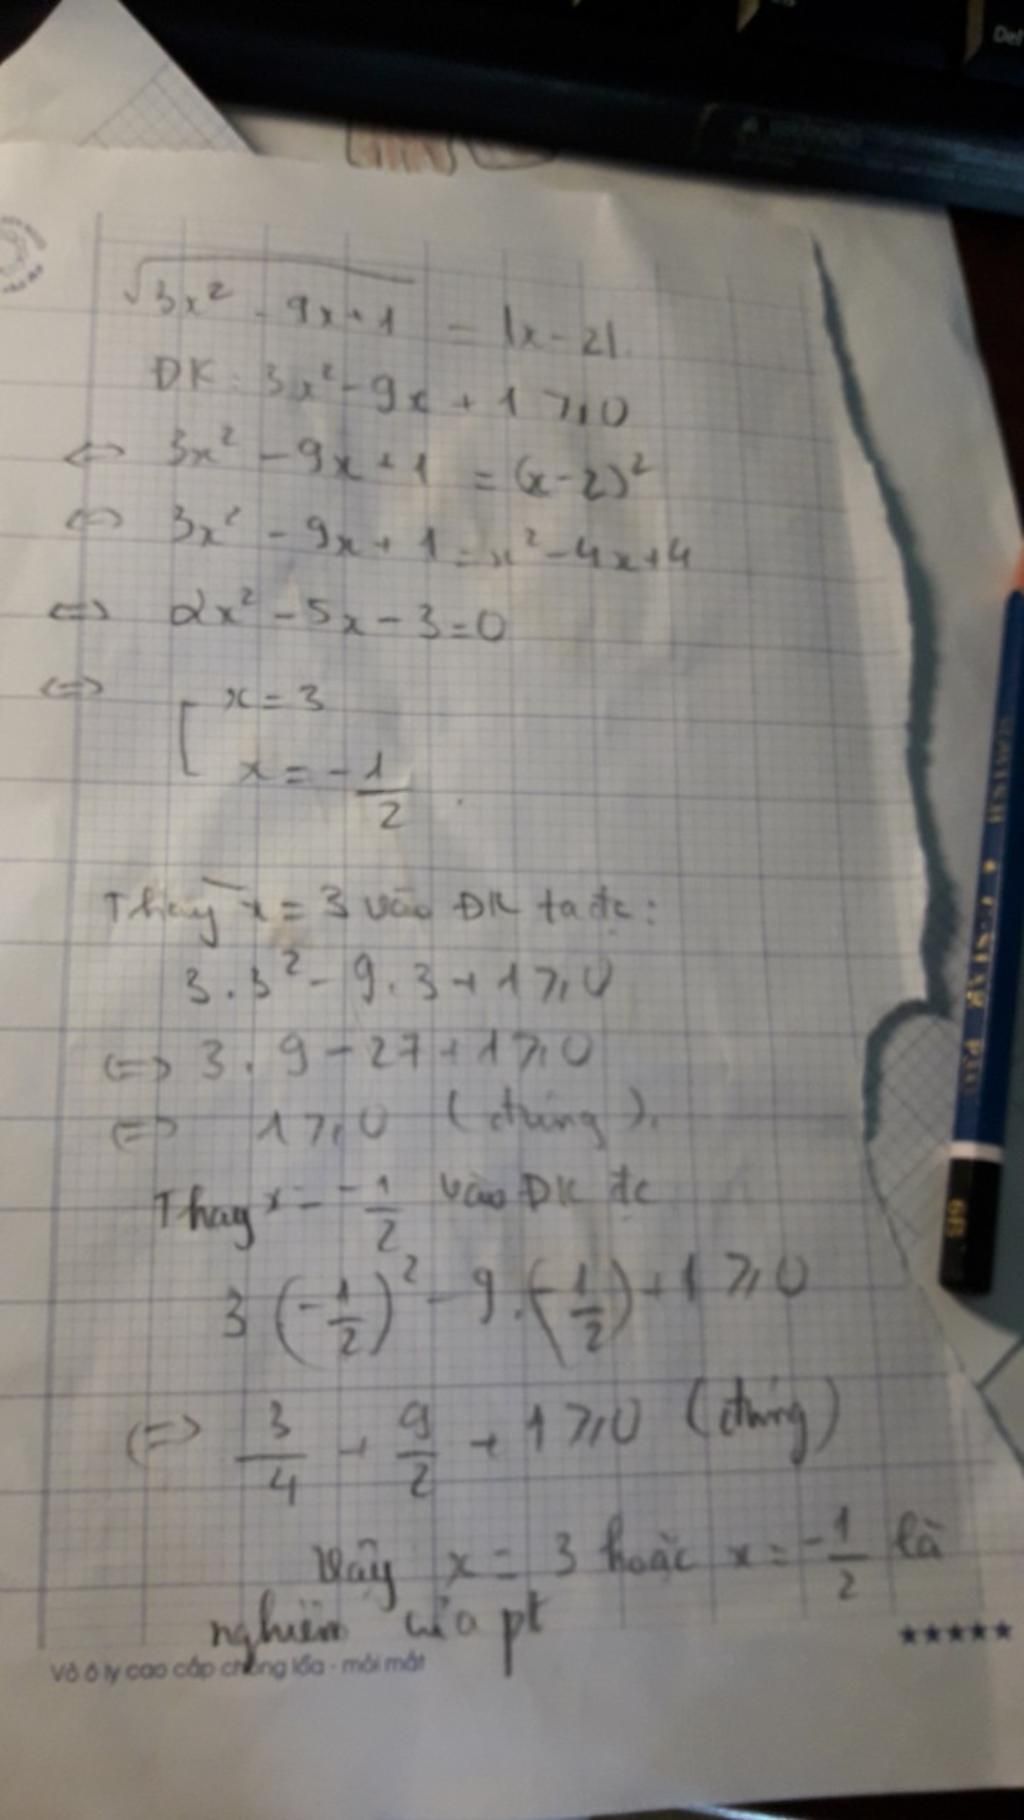 Del
√3x² - 9x + 1 = |x - 2|.
ĐK: 3x² - 9x + 1 ⩾ 0
<=> 3x² - 9x + 1 = (x - 2)²
<=> 3x² - 9x + 1 = x² - 4x + 4
<=> 2x² - 5x - 3 = 0
<=> [ x = 3
x = -1/2 .
Thay x = 3 vào ĐK ta đc:
3 . 3² - 9 . 3 + 1 ⩾ 0
<=> 3 . 9 - 27 + 1 ⩾ 0
<=> 1 ⩾ 0 (đúng).
Thay x = -1/2 vào ĐK đc
3 (-1/2)² - 9 . (-1/2) + 1 ⩾ 0
<=> 3/4 + 9/2 + 1 ⩾ 0 (đúng)
Vậy x = 3 hoặc x = -1/2 là
nghiệm của pt
★★★★★
Vở ô ly cao cấp chống lóa - mỏi mắt
6B